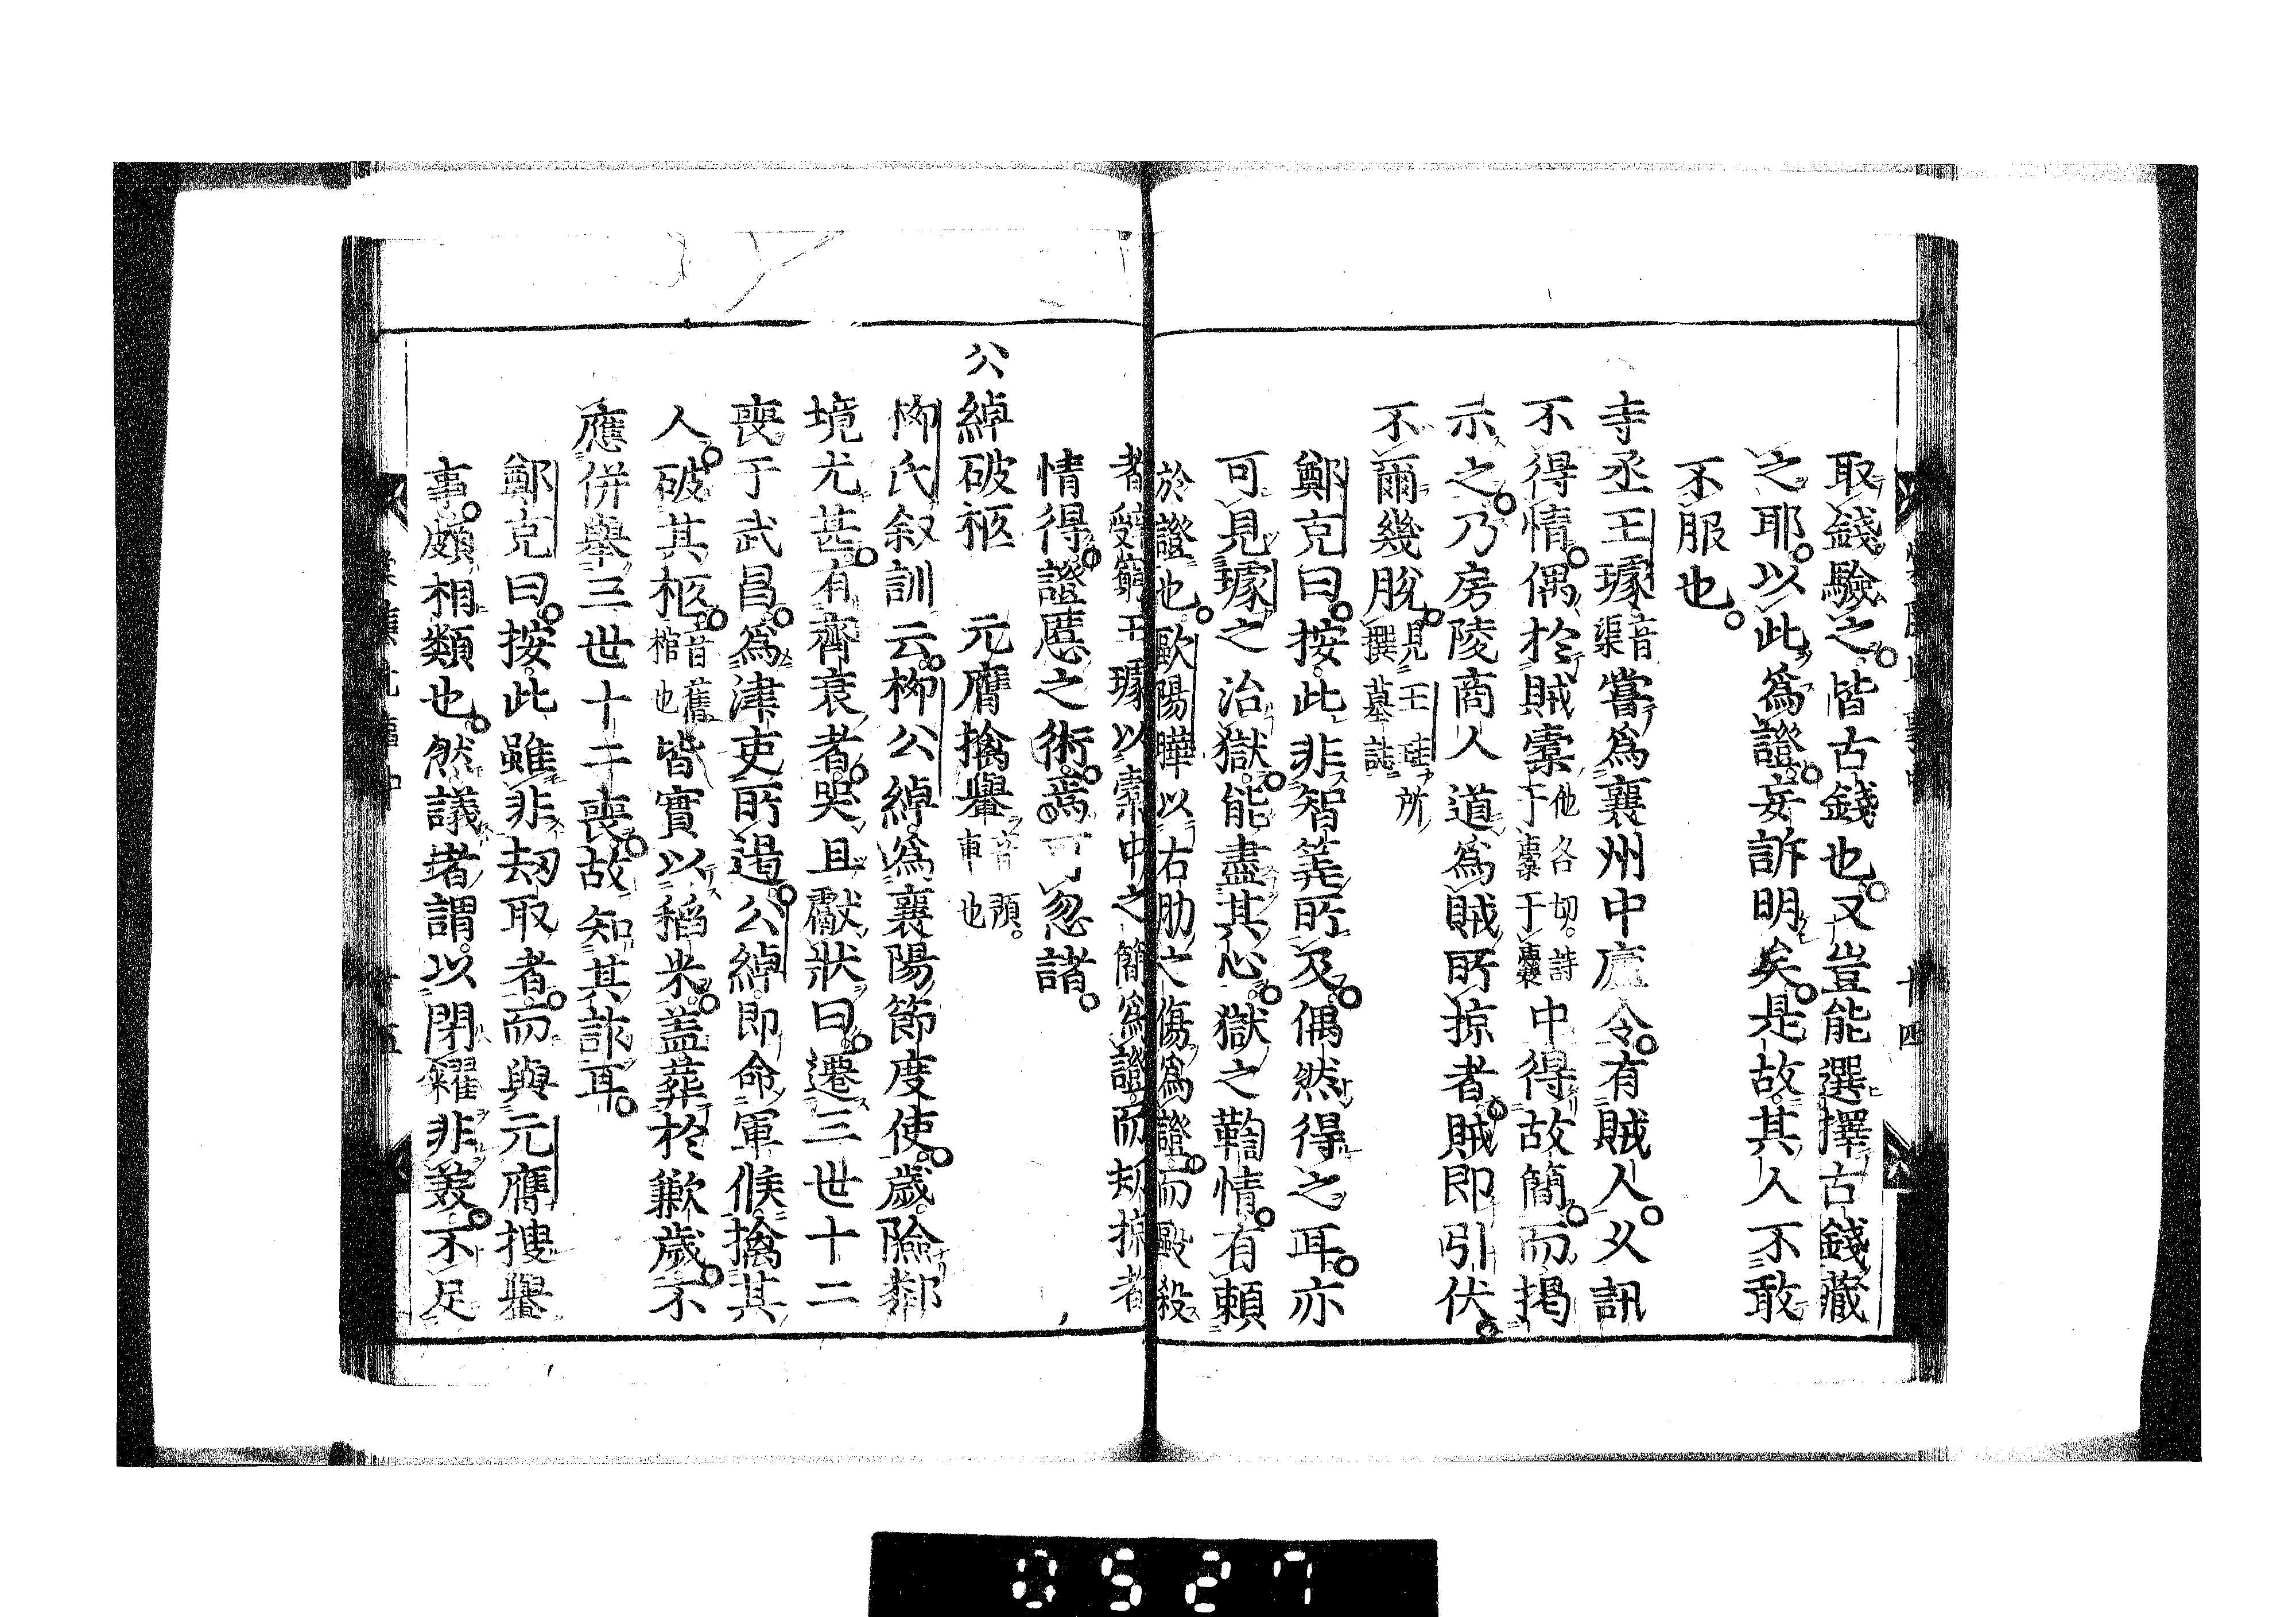 取錢驗之皆古錢也又豈能選擇古錢藏
之耶以此為證妄訴明矣是故其人不敢
不服也
寺丞王璩音渠嘗為襄州中廬令有賊人久訊
不得情偶於賊橐他各切詩于橐于囊中得故簡而揭
示之乃房陵商人道為賊所掠者賊即引伏
不爾幾脫見王珪所撰墓誌
鄭克曰按此非智筭所及偶然得之耳亦
可見璩之治獄能盡其心獄之鞫情有賴
於證也歐陽曄以右肋之傷為證而毆殺
者辭窮王璩以橐中之簡為證而刼掠者
情得證慝之術焉可忽諸
公綽破柩 元膺擒轝音預車也
柳氏叙訓云柳公綽為襄陽節度使歲險鄰
境尤甚有齊衰者哭且獻狀曰遷三世十二
喪于武昌為津吏所遏公綽即命軍候擒其
人破其柩音舊棺也皆實以稻米盖葬於歉歲不
應併舉三世十二喪故知其詐耳
鄭克曰按此雖非刼取者而與元膺搜轝
事頗相類也然議者謂以閉糴非義不足
十四
0527